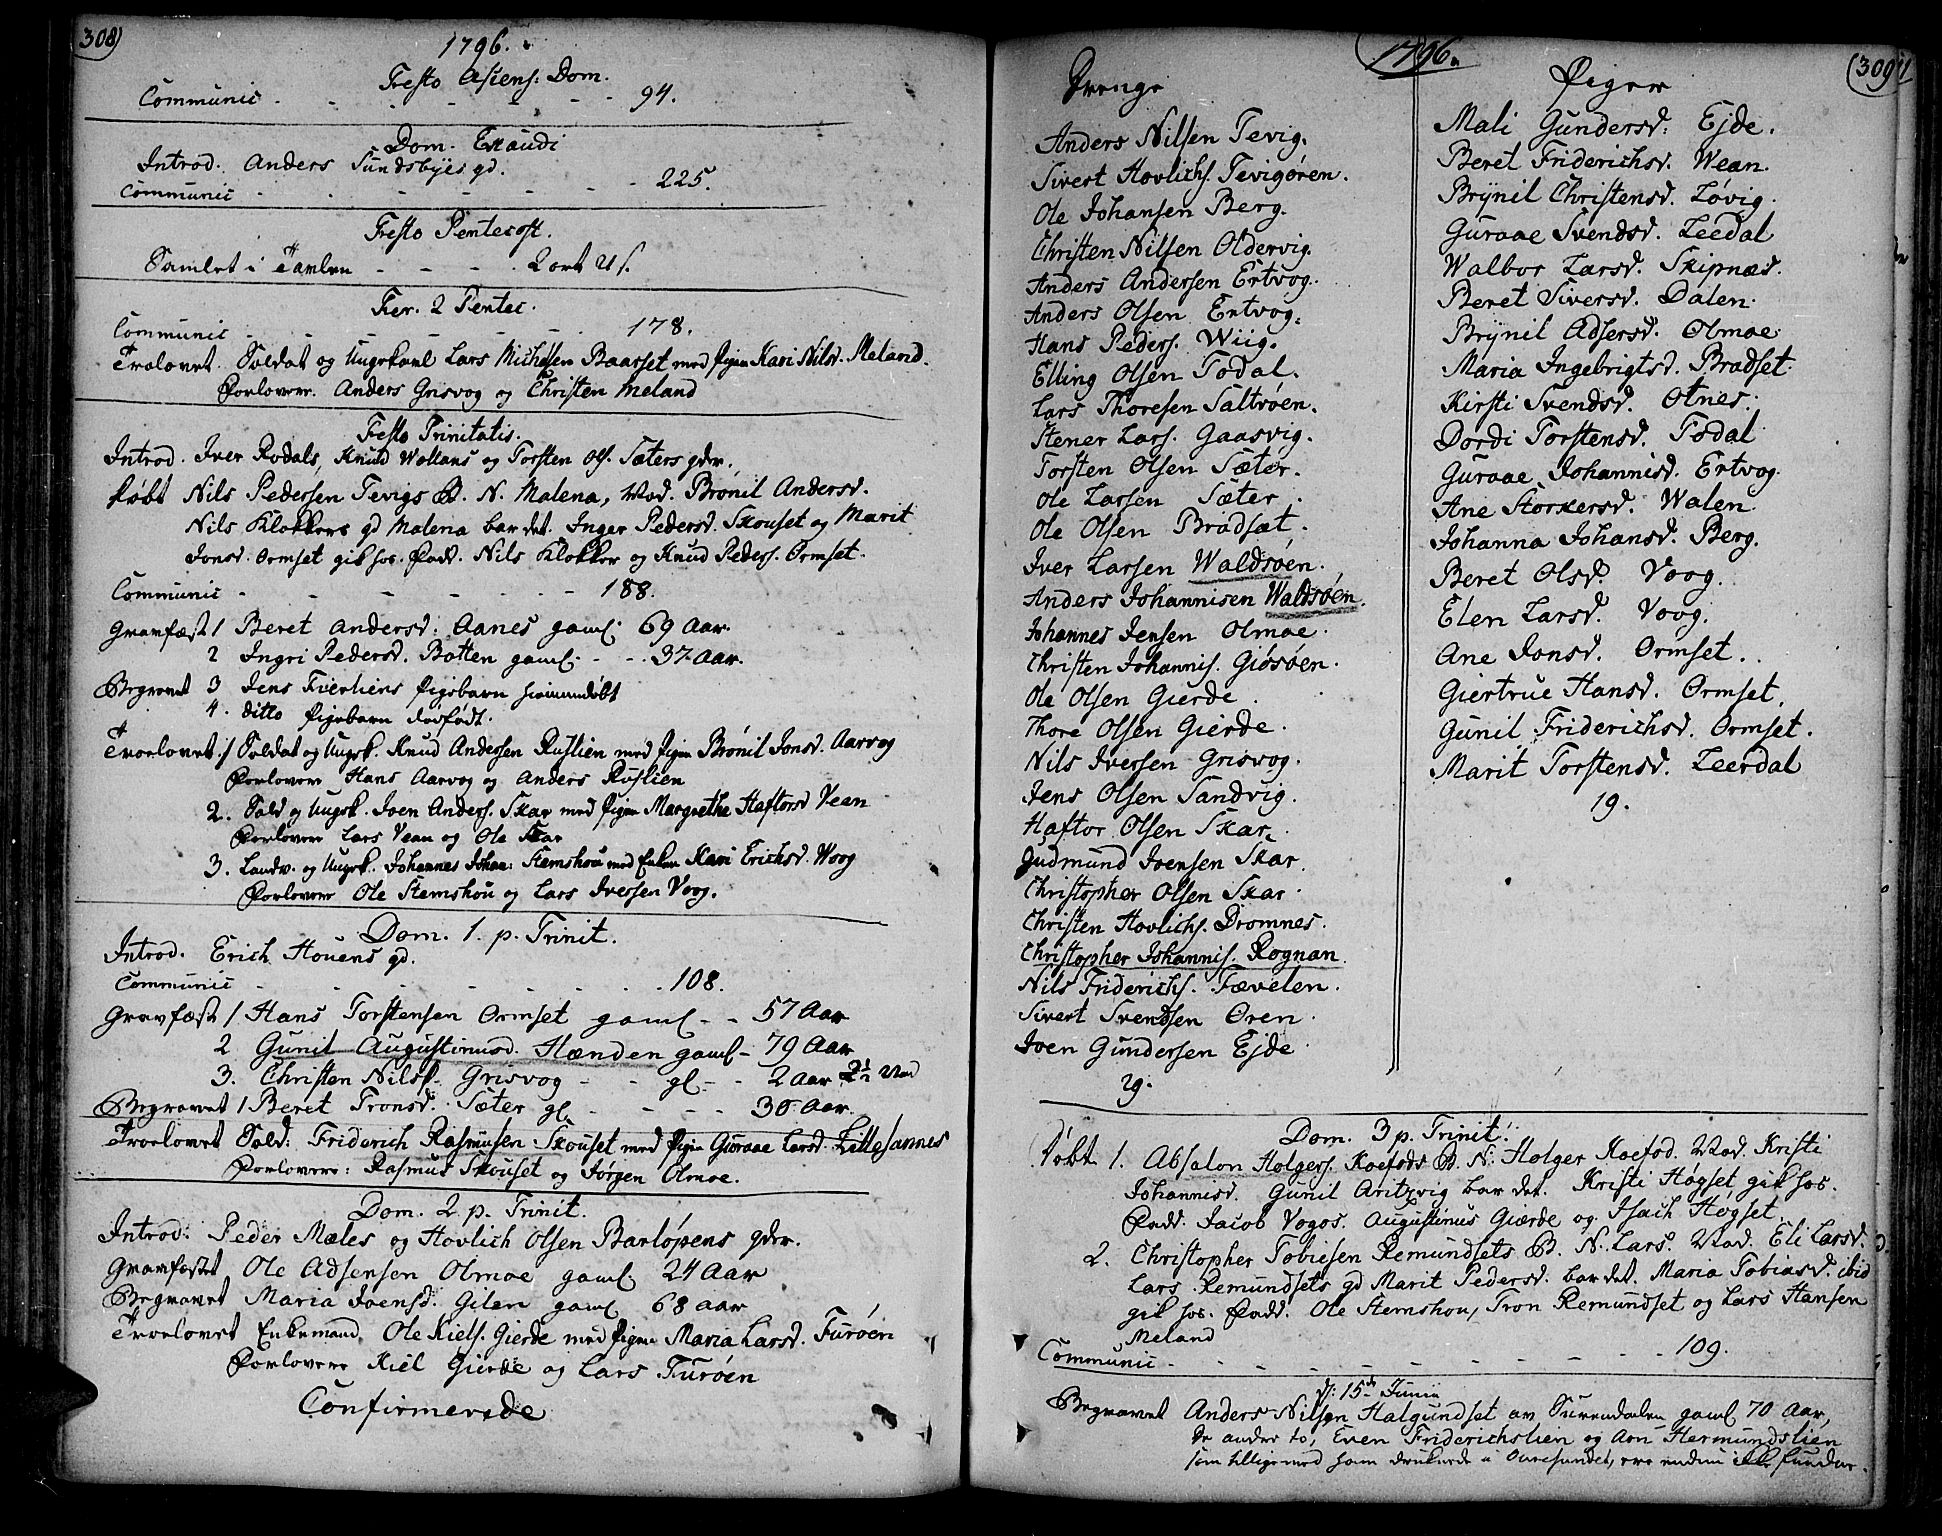 308)
1796.
Festo Asiens: Dom.
Communic - - - - - - 94.
Dom. Exaudi
Introd. Anders Sundsbyes qd.
Communic - - - - - - 225.
Festo Pentecost.
Samlet i Tavlen - - - - 2 ort 21 s.
Fer. 2 Pentec.
Communic - - - - - - 178.
Trolovet. Soldat og Ungekarl Lars Michelsen Baarset med Pigen Kari Nilsd. Meland.
Forlovere. Anders Grisvog og Christen Meland
Festo Trinitatis.
Introd. Iver Rodals, Knud Wollans og Torsten Ols. Sæters qdr.
Døbt Nils Pedersen Tevigs B. N. Malena, Mod. Brønil Andersd.
Nils Klokkers qd Malena bar det. Inger Pedersd. Skouset og Marit
Jonsd. Ormset gik hos. Fadd. Nils Klokker og Knud Peders. Ormset.
Communic - - - - - - 188.
Gravfæst 1 Beret Andersd: Aanes gaml. 69 Aar.
2 Ingri Pedersd. Botten gaml. - - 37 Aar.
Begravet 3 Jens Fierliens Pigebarn hiemmedøbt
4. ditto Pigebarn dødfødt.
Troelovet: 1 Soldat og Ungk. Knud Andersen Ruslien med Pigen Brønil Jonsd. Aarvog
Forlovere Hans Aarvog og Anders Ruslien
2. Sold og Ungk. Joen Anders. Skar med Pigen Margrethe Haftorsd Vean
Forlovere Lars Vean og Ole Skar
3. Landv. og Ungk. Johannes Johan: Stemshou med Enken Kari Erichsd. Woog
Forlovere Ole Stemshou og Lars Iversen Voog.
Dom. 1. p. Trinit.
Introd. Erich Houens qd.
Communic - - - - - - 108.
Gravfæst 1 Hans Torstensen Ormset gaml - - 57 Aar
2 Gunil Augustinusd. Hænden gaml - 79 Aar
3. Christen Nils. Grisvog - - gl - - 2 Aar 2½ Md
Begravet 1 Beret Tronsd. Sæter gl. - - - - 30 Aar.
Troelovet Sold: Friderich Rasmusen Skouset med Pigen Guroae Larsd. Lillesannes
Forlovere: Rasmus Skouset og Jørgen Olmoe.
Dom. 2 p. Trinit.
Introd: Peder Mæles og Hovlich Olsen Barløpens qdr.
Gravfæstet Ole Adsensen Olmoe gaml 24 Aar
Begravet Maria Joensd. Gilen gaml 68 aar
Troelovet Enkemand Ole Kiels. Gierde med Pigen Maria Larsd. Furøen
Forlovere Kiel Gierde og Lars Furøen
Confirmerede
1796.
309)
Drenge
Anders Nilsen Tevig.
Sivert Hovlichs. Tevigøren.
Ole Johansen Berg.
Christen Nilsen Oldervig.
Anders Andersen Ertvog.
Anders Olsen Ertvog.
Hans Peders. Wiig.
Elling Olsen Todal.
Lars Thoresen Saltrøen.
Stener Lars. Gaasvig.
Torsten Olsen Sæter.
Ole Larsen Sæter.
Ole Olsen Bradsæt.
Iver Larsen Waldsøen.
Anders Johannisen Waldsøen.
Johannes Jensen Olmoe.
Christen Johannis. Giøsøen.
Ole Olsen Gierde.
Thore Olsen Gierde.
Nils Iversen Grisvog.
Jens Olsen Sandvig.
Haftor Olsen Skar.
Gudmund Joensen Skar.
Christopher Olsen Skar.
Christen Hovlichs. Dromnes.
Christopher Johannis. Rognan.
Nils Friderichs. Fævelen.
Sivert Svendsen Øren.
Joen Gundersen Ejde.
29.
Piger
Mali Gundersd: Ejde.
Beret Friderichsd. Wean.
Brynil Christensd. Løvig.
Guroae Svendsd. Leedal
Walbor Larsd. Skipnæs.
Beret Siversd. Dalen.
Brynil Adsersd. Olmoe
Maria Ingebrigtsd. Bradset.
Kirsti Svendsd. Otnes.
Dordi Torstensd. Todal
Guroae Johannisd. Ertvog.
Ane Storkersd. Walen
Johanna Johansd. Berg.
Beret Olsd. Voog.
Elen Larsd. Voog.
Ane Jonsd. Ormset.
Giertrue Hansd. Ormset.
Gunil Friderichsd. Ormset.
Marit Torstensd. Leerdal
19.
Dom. 3 p. Trinit.
Døbt 1. Absalon Holgers. Koefods B. N. Holger Koefod. Mod. Kristi
Johannisd. Gunil Aritzvig bar det. Kristi Høgset gik hos.
Fadd. Jacob Vogos. Augustinus Gierde og Isach Høgset.
2. Christopher Tobiesen Remundsets B. N. Lars. Mod. Eli Larsd.
Lars Remundsets qd Marit Pedersd. bar det. Maria Tobiasd. ibid
gik hos. Fadd. Ole Stemshou, Tron Remundset og Lars Hansen
Meland
Communic - - - - - - 109.
d: 15de Junii
Begravet Anders Nilsen Halgundset av Surendalen gaml 70 Aar,
De andre to, Even Friderichslien og Aon Hermundslien
som tillige med ham druknede i Ouresundet, ere endnu ikke fundne.